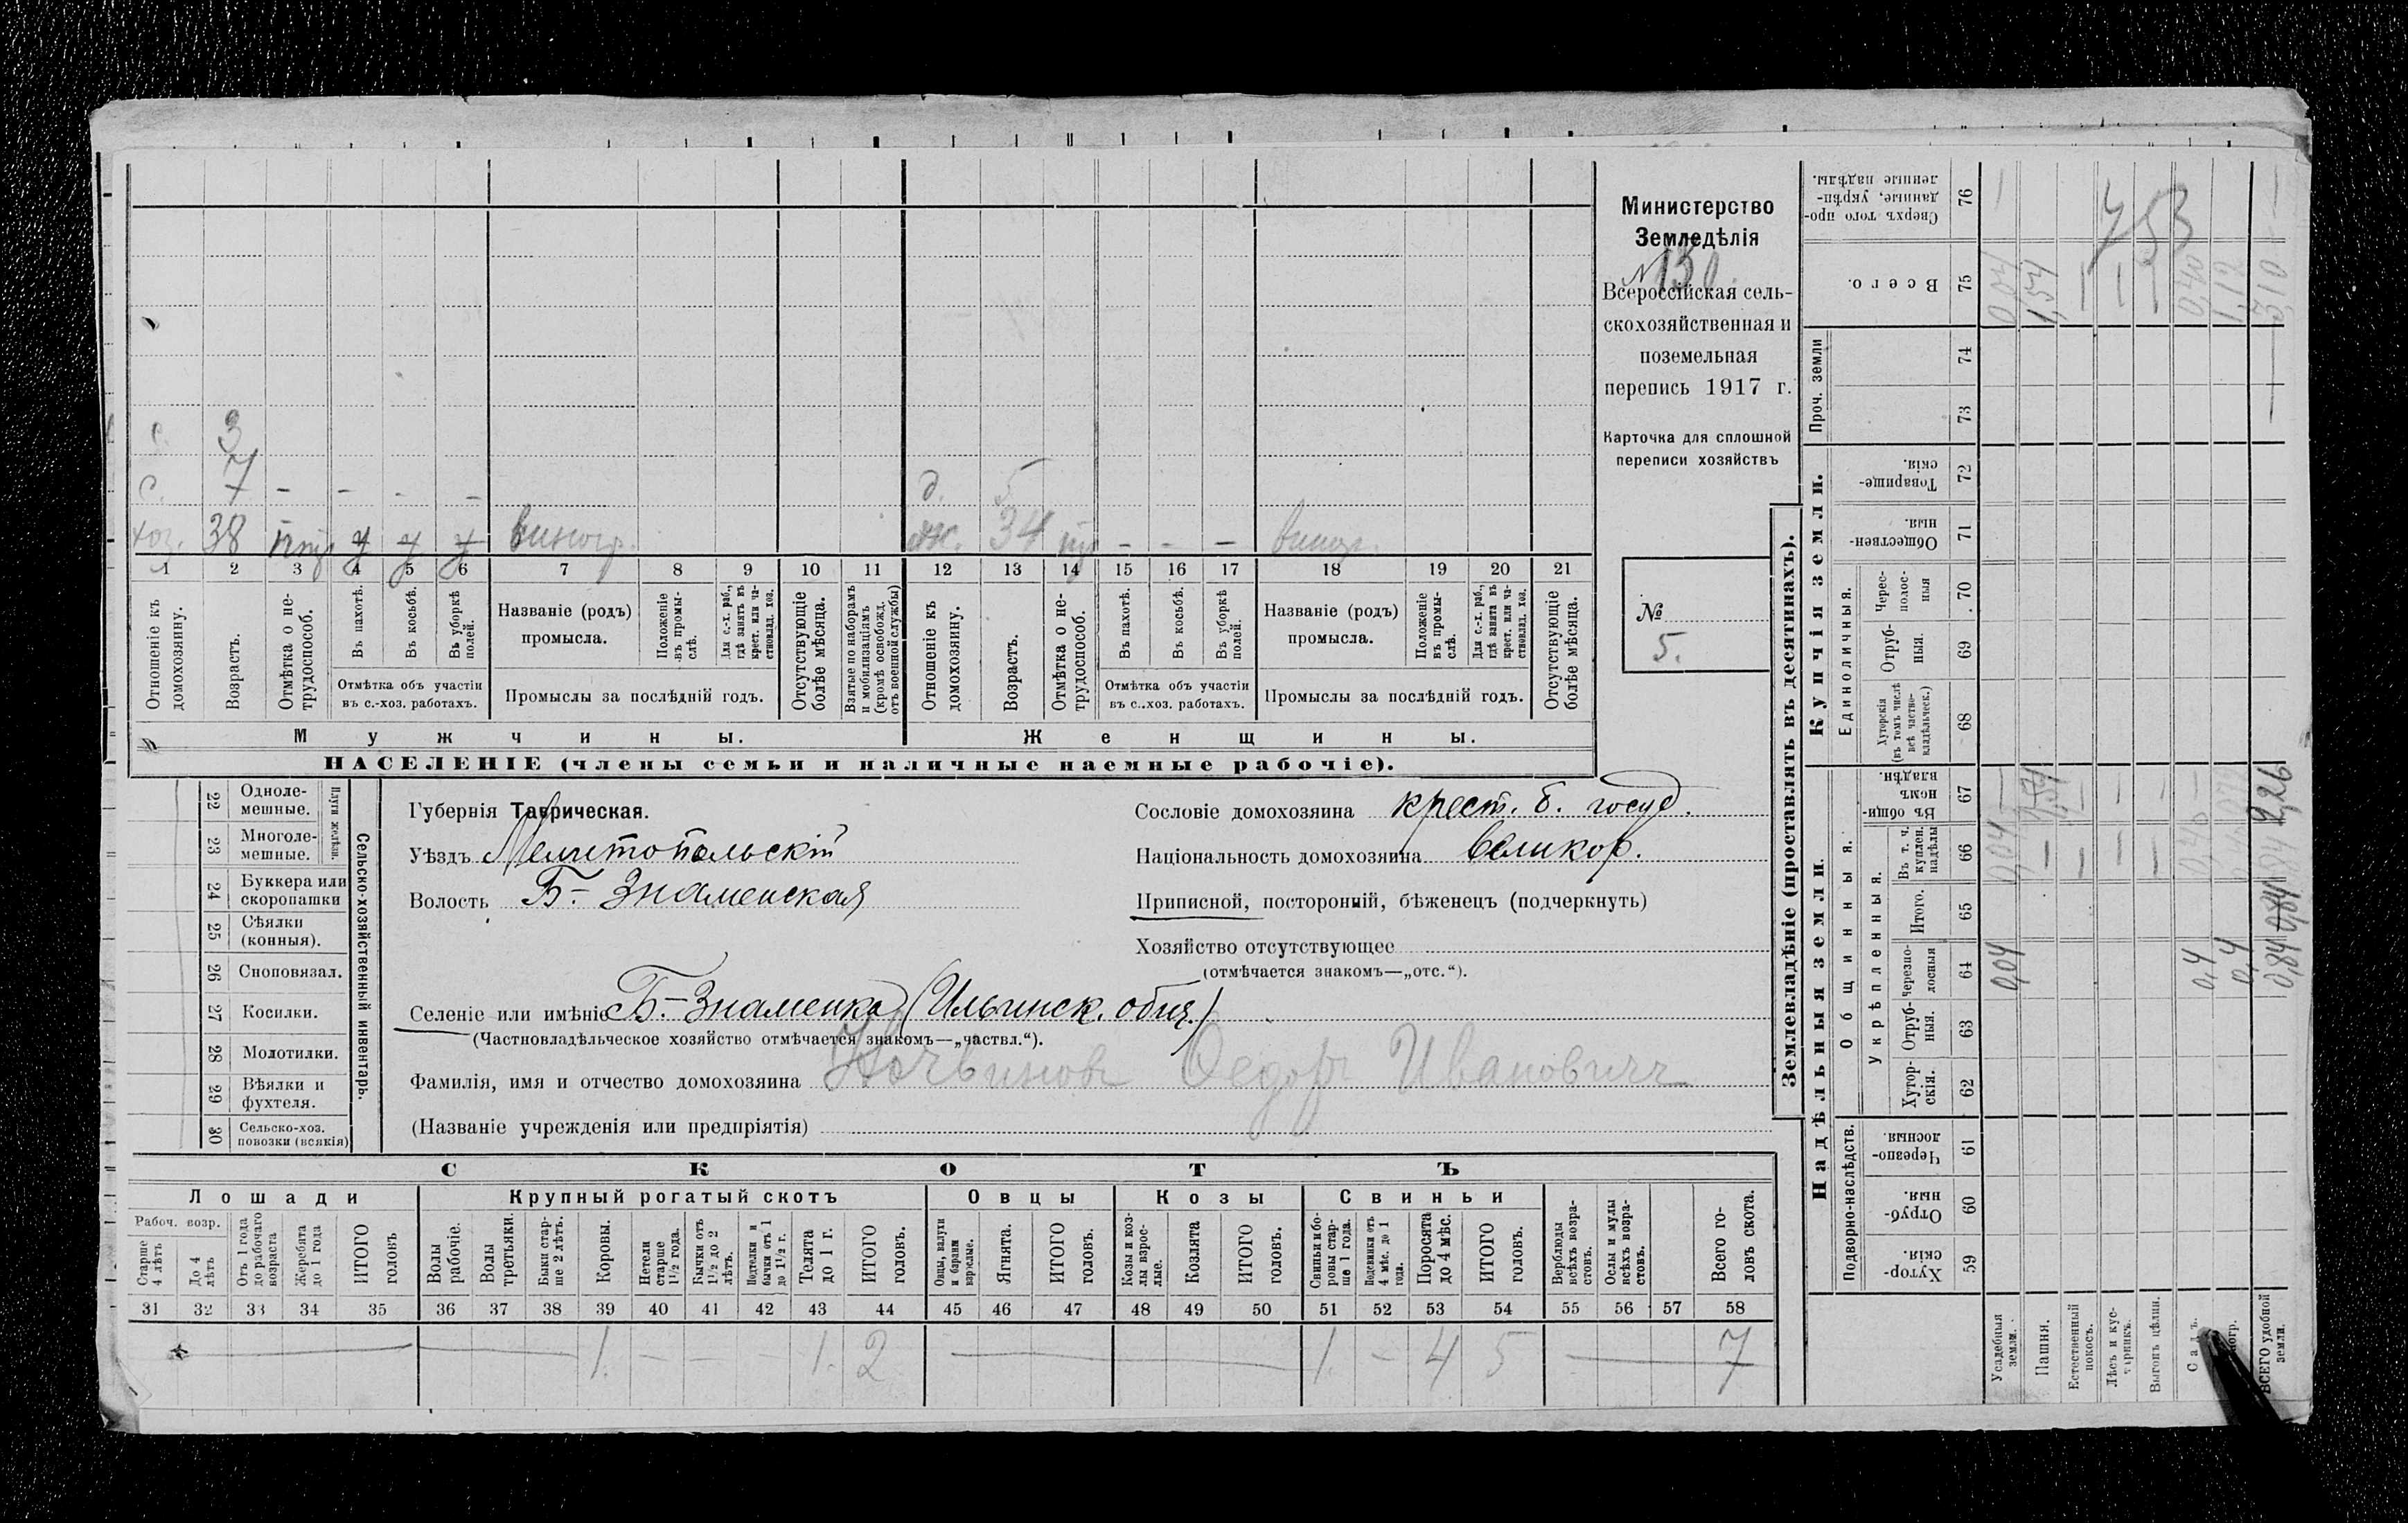 с. 3
с. 7 – – - –
д. 5
хоз. 38 у у у виногр.
ж. 34 – – – виногр.
1 2 3 4 5 6 7 8 9 10 11 12 13 14 15 16 17 18 19 20 21
Отношеніе къ домохозяину.
Возрастъ.
Отмѣтка о нетрудоспособ.
Въ пахотѣ.
Въ косьбѣ.
Въ уборкѣ полей.
Отмѣтка объ участіи
въ с.-хоз. работахъ.
Названіе (родъ)
промысла.
Положеніе въ промыслѣ.
Для с.-х. раб., гдѣ занятъ въ крест. или частновлад. хоз.
Промыслы за послѣдній годъ.
Отсутствующіе болѣе мѣсяца.
Взятые по наборамъ и мобилизаціямъ (кромѣ освобожд. отъ военной службы)
Отношеніе къ домохозяину.
Возрастъ.
Отмѣтка о нетрудоспособ.
Въ пахотѣ.
Въ косьбѣ.
Въ уборкѣ полей.
Отмѣтка объ участіи
въ с..хоз. работахъ.
Названіе (родъ)
промысла.
Положеніе въ промыслѣ.
Для с.-х. раб., гдѣ занята въ крест. или частновлад. хоз.
Промыслы за послѣдній годъ.
Отсутствующіе болѣе мѣсяца.
Мужчины.
Женщины.
НАСЕЛЕНІЕ (члены семьи и наличные наемные рабочіе).
Министерство
Земледѣлія
№ 130.
Всероссійская сель-
скохозяйственная и
поземельная
перепись 1917 г.
Карточка для сплошной
переписи хозяйствъ
№
5.
22 Одноле-
мешные.
23 Многоле-
мешные.
Плуги желѣзн.
24 Буккера или
скоропашки
25 Сѣялки
(конныя).
26 Сноповязал.
27 Косилки.
28 Молотилки.
29 Вѣялки и
фухтеля.
30 Сельско-хоз.
повозки (всякія)
Сельско-хозяйственный инвентарь.
Губернія Таврическая.
Уѣздъ Мелитопольскій
Волость Б.-Знаменская
Сословіе домохозяина крест. б. госуд.
Національность домохозяина великор.
Приписной, посторонній, бѣженецъ (подчеркнуть)
Хозяйство отсутствующее
(отмѣчается знакомъ—„отс.“).
Селеніе или имѣніе Б.-Знаменка (Ильинск. общ.)
(Частновладѣльческое хозяйство отмѣчается знакомъ—„частвл.“).
Фамилія, имя и отчество домохозяина Федоръ Ивановичъ
(Названіе учрежденія или предпріятія)
СКОТЪ
Лошади
Крупный рогатый скотъ
Овцы
Козы
Свиньи
Рабоч. возр.
Старше 4 лѣтъ
До 4 лѣтъ
Отъ 1 года до рабочаго возраста
Жеребята до 1 года
ИТОГО головъ
Волы рабочіе.
Волы третьяки.
Быки старше 2 лѣтъ.
Коровы.
Нетели старше 1½ года.
Бычки отъ 1½ до 2 лѣтъ.
Подтелки и бычки отъ 1 до 1½ г.
Телята до 1 г.
ИТОГО головъ.
Овцы, валухи и бараны взрослые.
Ягнята.
ИТОГО головъ.
Козы и козлы взрослые.
Козлята
ИТОГО головъ.
Свиньи и боровы старше 1 года.
Подсвинки отъ 4 мѣс. до 1 года.
Поросята до 4 мѣс.
ИТОГО головъ.
Верблюды всѣхъ возрастовъ.
Ослы и мулы всѣхъ возрастовъ.
Всего головъ скота.
31 32 33 34 35 36 37 38 39 40 41 42 43 44 45 46 47 48 49 50 51 52 53 54 55 56 57 58
1. – – – 1. 2 1 – 4 5 7
Землевладѣніе (проставлять въ десятинахъ).
Надѣльныя земли.
Купчія земли.
Проч. земли
Подворно-наслѣдств.
Общинныя.
Укрѣпленныя.
Единоличныя.
Хуторскія. 59
Отрубныя. 60
Черезполосныя. 61
Хуторскія. 62
Отрубныя. 63
Черезполосныя 64
Итого. 65
Въ т. ч. куплен. надѣлы 66
Въ общинномъ владѣн. 67
Хуторскія (въ томъ числѣ всѣ частновладѣльческ.) 68
Отрубныя. 69
Чересполосныя 70
Общественныя. 71
Товарищескія. 72
73
74
Всего. 75
Сверхъ того проданные, укрѣпленные надѣлы. 76
Усадебныя земли. 0,04 0,04 0,04
Пашня. 1,54 1,54
Естественный покосъ.
Лѣсъ и кустарникъ.
Выгонъ цѣлин.
Садъ. 0,4 0,40 0,40
0,4 1,12
ВСЕГО удобной земли. 0,84 0,84 2,26 3,10
753